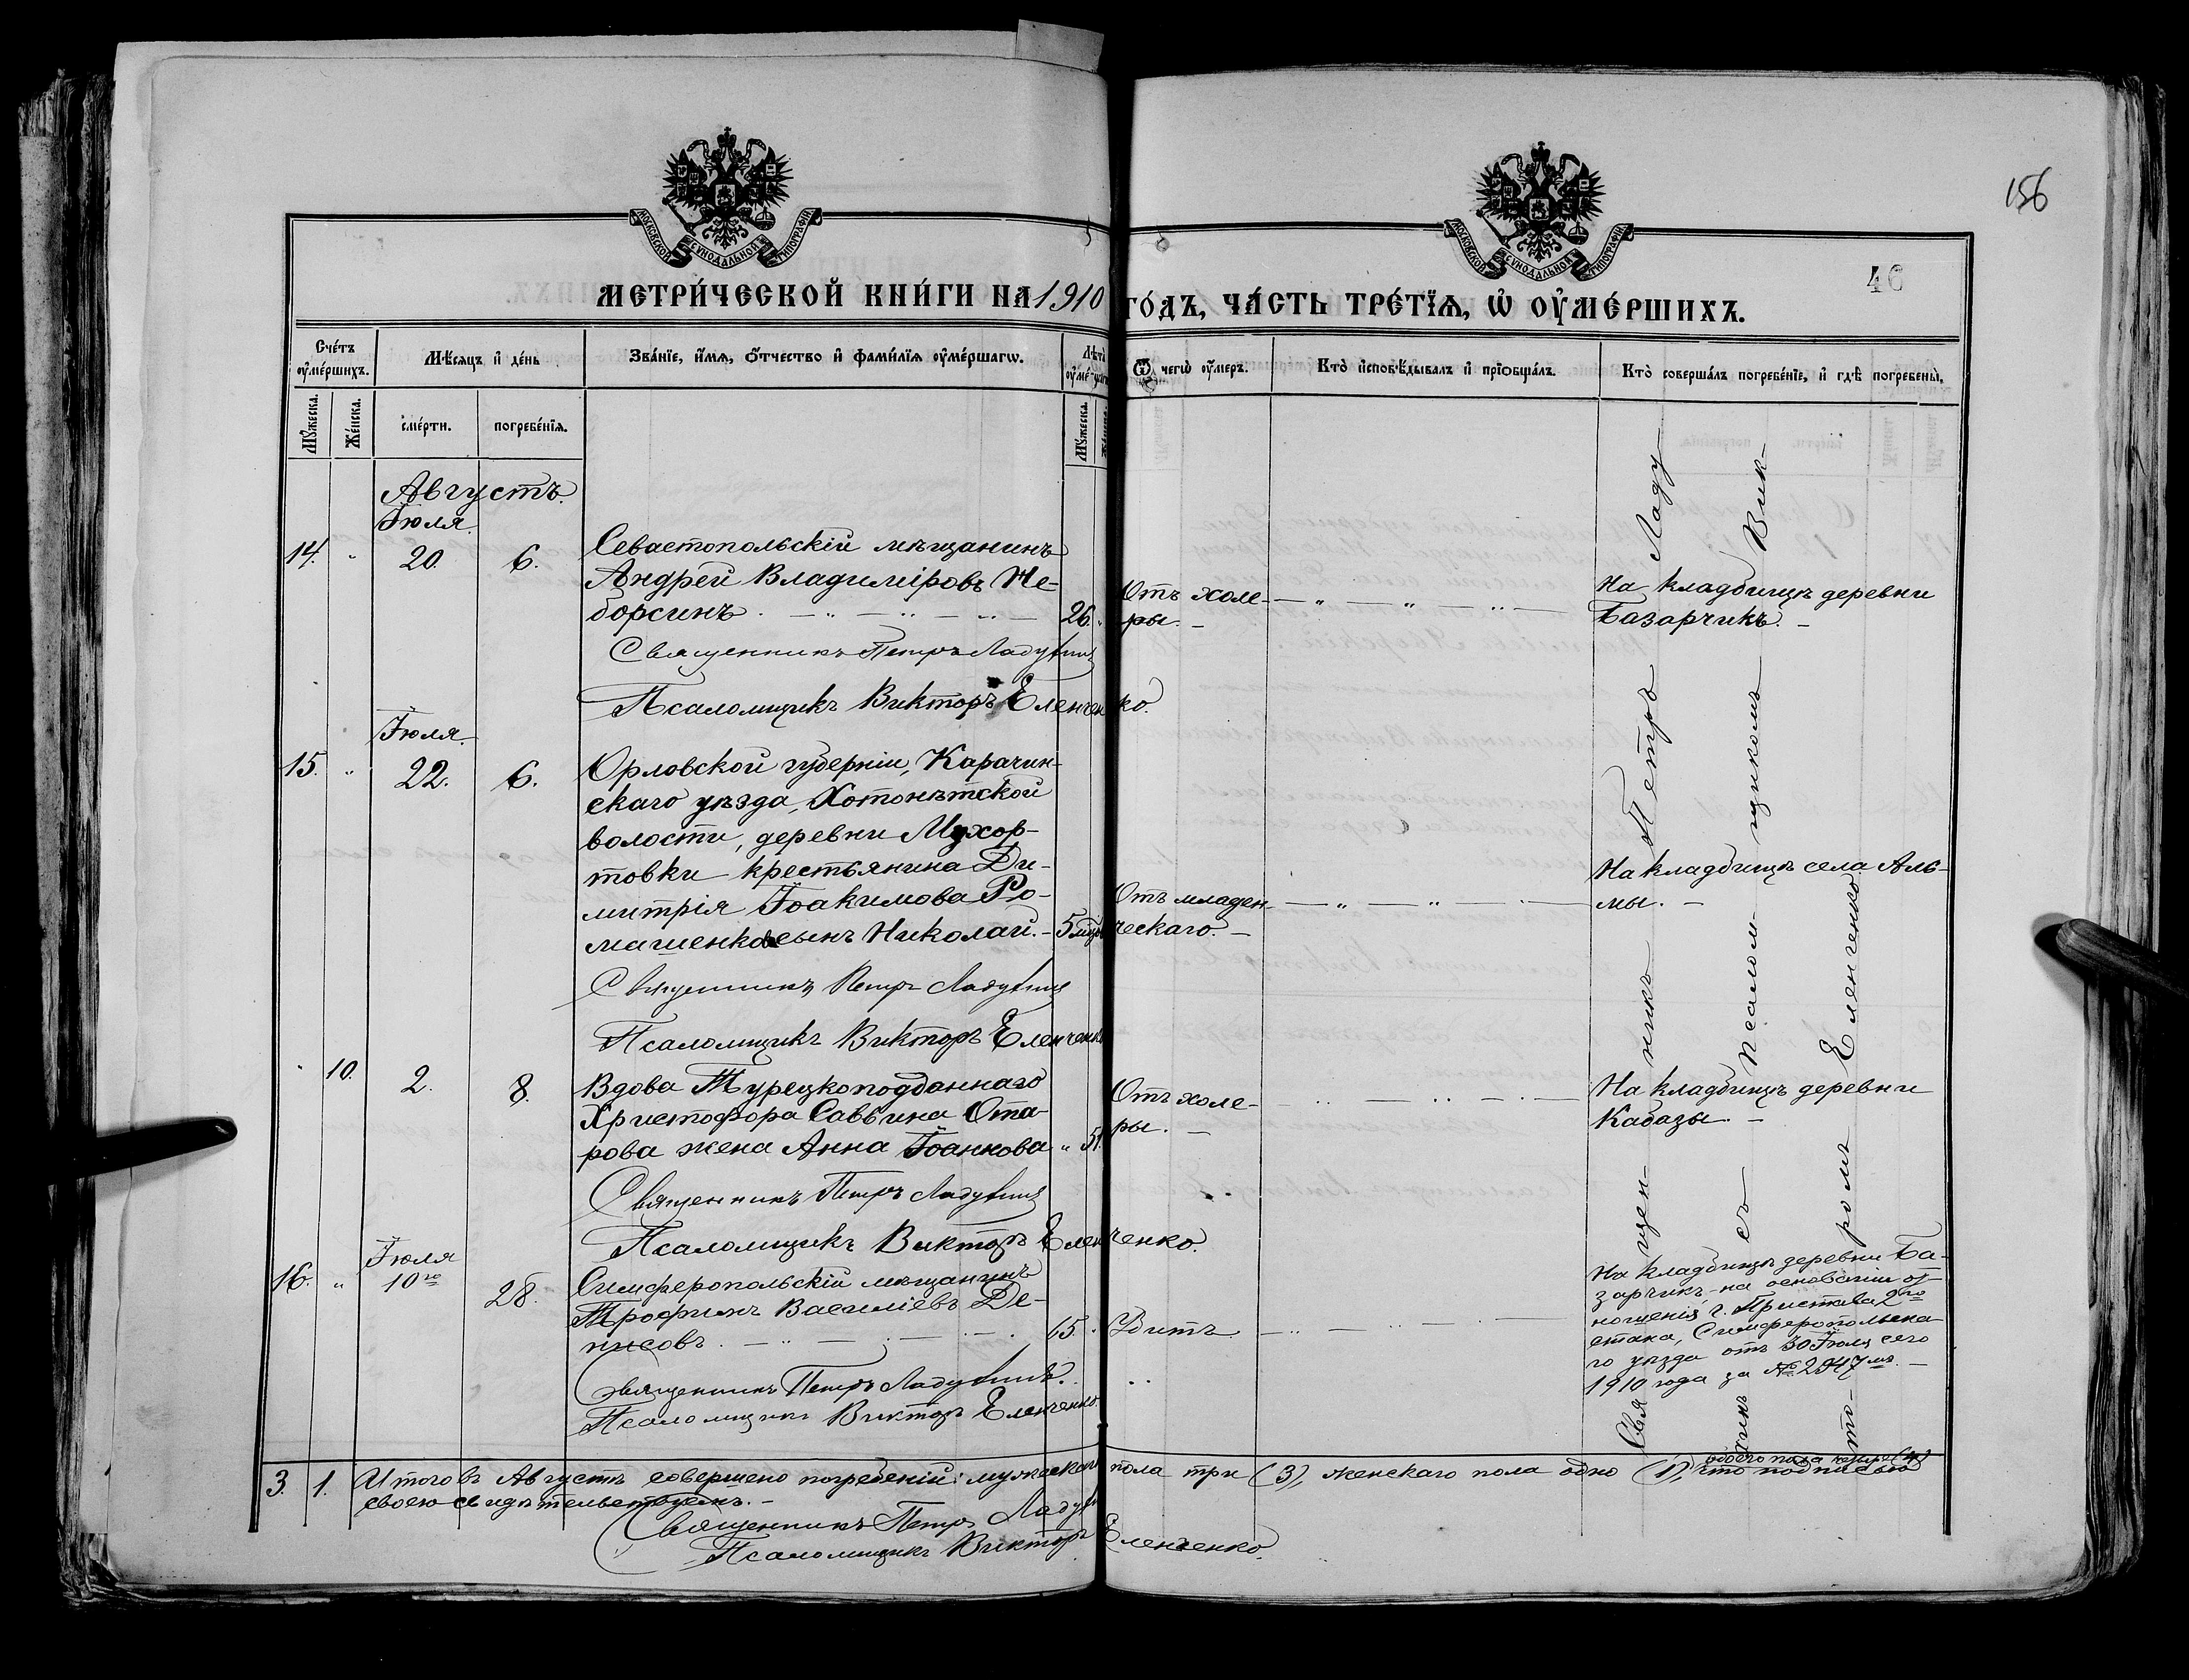 156
46
МОСКОВСКОЙ СѴНОДАЛЬНОЙ ТИПОГРАФІИ
МОСКОВСКОЙ СѴНОДАЛЬНОЙ ТИПОГРАФІИ
МЕТРИ́ЧЕСКОЙ КНИ́ГИ НА 1910 ГО́ДЪ, ЧА́СТЬ ТРЕ́ТЇѦ, Ѡ҆ ОУ҆МЕ́РШИХЪ.
Сче́тъ оу҆ме́ршихъ.
Мѣ́сѧцъ и҆ де́нь
Зва́нїе, и҆́мѧ, ѻ҆́тчество и҆ фами́лїѧ оу҆ме́ршагѡ.
Лѣ́та
Ѿ чегѡ̀ оу҆́меръ.
Кто̀ и҆сповѣ́дывалъ и҆ прїѡбща́лъ.
Кто̀ соверша́лъ погребе́нїе, и҆ гдѣ̀ погребены̀.
Мꙋ́жеска.
Же́нска.
сме́рти.
погребе́нїѧ.
Мꙋ́жеска.
Августъ.
Іюля
14. " 20. 6. Севастопольскій мѣщанинъ
Андрей Владиміровъ Не-
борсинъ. 26. "
Отъ холе-
ры. —
На кладбищѣ деревни
Базарчикъ. —
Священникъ Петръ Ладу
Псаломщикъ Викторъ Еленченко.
Іюля.
15. " 22. 6. Орловской губерніи, Карачин-
скаго уѣзда, Хотонѣтской
волости, деревни Мухор-
товки крестьянина Ди-
митрія Іоакимова Ро-
машенкова сынъ Николай. — 5 мѣс
Отъ младен-
ческаго. —
На кладбищѣ села Аль-
мы. —
Священникъ Петръ Ладу
Псаломщикъ Викторъ Еленченко
" 10. 2. 8. Вдова Турецкоподданнаго
Христофора Саввина Ота-
рова жена Анна Іоаннова " 51.
Отъ холе-
ры. —
На кладбищѣ деревни
Кабазы. —
Священникъ Петръ Ладу
Псаломщикъ Викторъ Еленченко.
Іюля
16. " 10го 28. Симферопольскій мѣщанинъ
Трофимъ Василіевъ Де-
нисовъ. 65. "
Убитъ
На кладбищѣ деревни Ба-
зарчикъ на основаніи от-
ношенія г. Пристава 2го
стана, Симферопольска-
го уѣзда отъ 30 Іюля сего
1910 года за № 2947мъ. —
Священникъ Петръ Ладу
Псаломщикъ Викторъ Еленченко.
Священникъ Петръ Ладу
съ Псаломщикомъ Вик-
торомъ Еленченко
3. 1. Итого въ Августѣ совершено погребеній: мужескаго пола три (3), женскаго пола одно (1), обоего пола четыре (4) что подписью
своею свидѣтельствуемъ. —
Священникъ Петръ Ладу
Псаломщикъ Викторъ Еленченко.